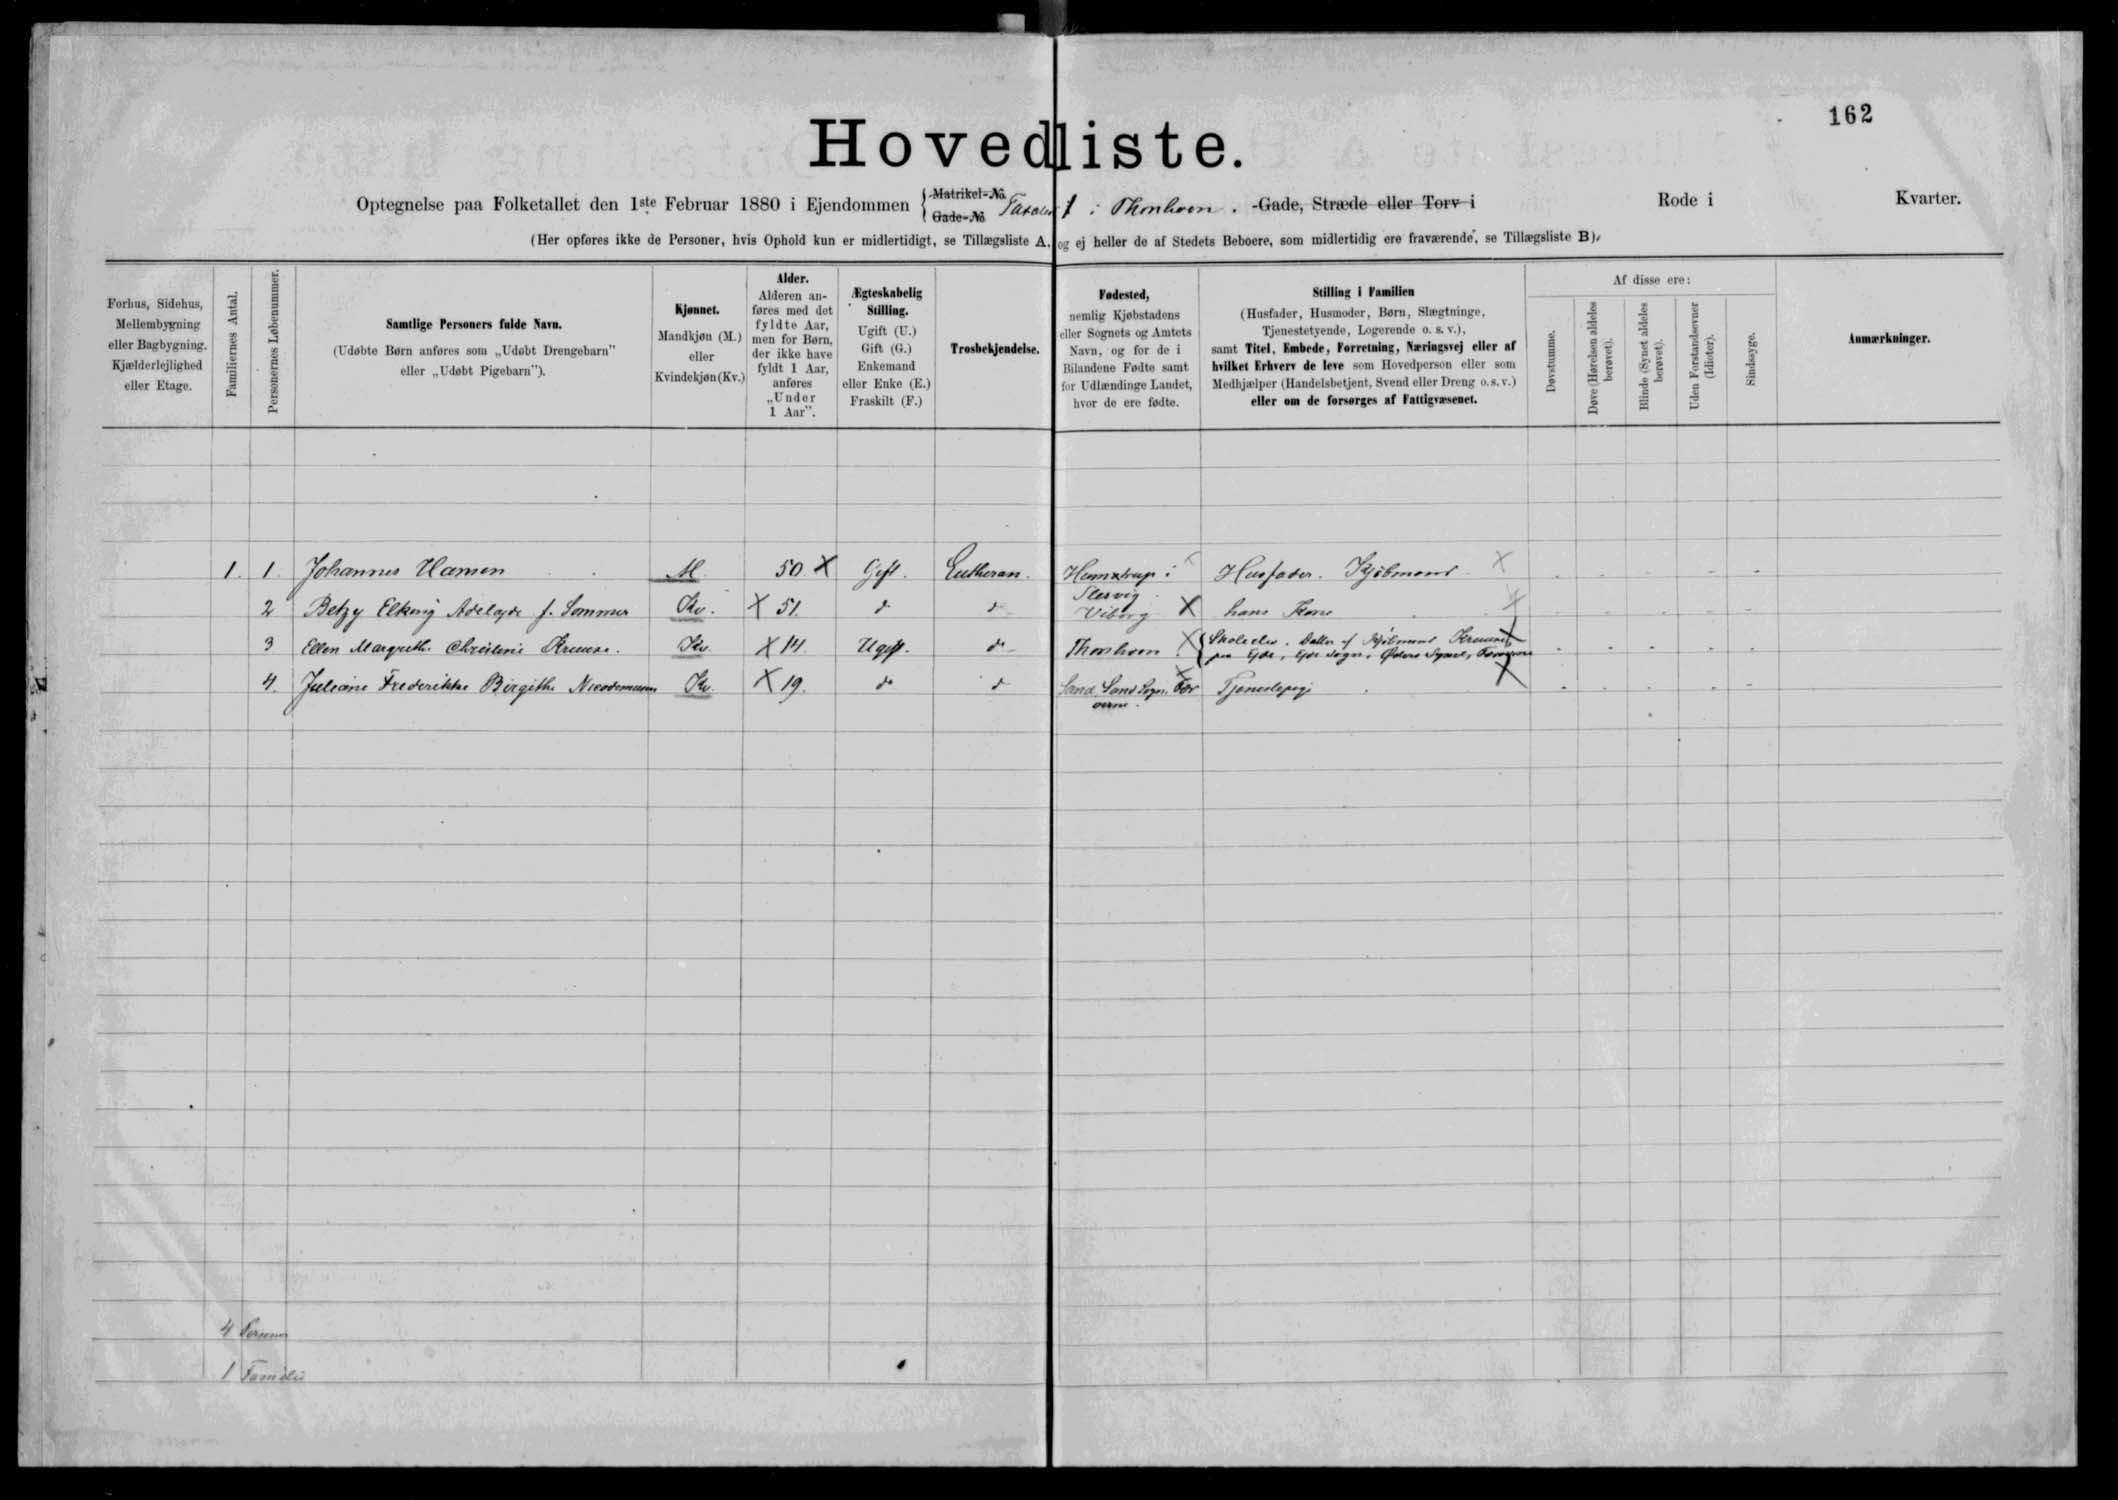 162
Hovedliste.
Optegnelse paa Folketallet den 1ste Februar 1880 i Ejendommen { Matrikel-No. Gade-No i Thorshavn. Gade, Stræde eller Torv i Rode i Kvarter.
(Her opføres ikke de Personer, hvis Ophold kun er midlertidigt, se Tillægsliste A, og ej heller de af Stedets Beboere, som midlertidig ere fraværende, se Tillægsliste B).
Forhus, Sidehus,
Mellembygning
eller Bagbygning.
Kjælderlejlighed
eller Etage.
Familiernes Antal.
Personernes Løbenummer.
Samtlige Personers fulde Navn.
(Udøbte Børn anføres som „Udøbt Drengebarn"
eller „Udøbt Pigebarn").
Kjønnet.
Mandkjøn (M.)
eller
Kvindekjøn (Kv.)
Alder.
Alderen an-
føres med det
fyldte Aar,
men for Børn,
der ikke have
fyldt 1 Aar,
anføres
„Under
1 Aar".
Ægteskabelig
Stilling.
Ugift (U.)
Gift (G.)
Enkemand
eller Enke (E.)
Fraskilt (F.)
Trosbekjendelse.
Fødested,
nemlig Kjøbstadens
eller Sognets og Amtets
Navn, og for de i
Bilandene Fødte samt
for Udlændinge Landet,
hvor de ere fødte.
Stilling i Familien
(Husfader, Husmoder, Børn, Slægtninge,
Tjenestetyende, Logerende o. s. v.),
samt Titel, Embede, Forretning, Næringsvej eller af
hvilket Erhverv de leve som Hovedperson eller som
Medhjælper (Handelsbetjent, Svend eller Dreng o. s. v.)
eller om de forsørges af Fattigvæsenet.
Af disse ere:
Døvstumme.
Døve (Hørelsen aldeles
berøvet).
Blinde (Synet aldeles
berøvet).
Uden Forstandsevner
(Idioter).
Sindssyge.
Anmærkninger.
1. 1. Johannes Hansen M. 50 X Gift. Lutheran. i Slesvig. Husfader. Kjøbmand X
2 Betzy Elkung Adelayde f. Sommer Kv. X 51. do do Viborg X hans Kone X
3 Ellen Margrethe Christine Kruuse. Kv. X 14. Ugift. do Thorshavn X { Skoleelev. Datter af Kjøbmand Kruuse X
paa Ejde, Ejde Sogn, Østerø Syssel, Færøerne
4. Juliane Frederikke Birgithe Nicodemusen Kv. X 19. do do Sand, Sand Sogn, Fær X Tjenestepige X
øerne.
4 Personer
1 Familie